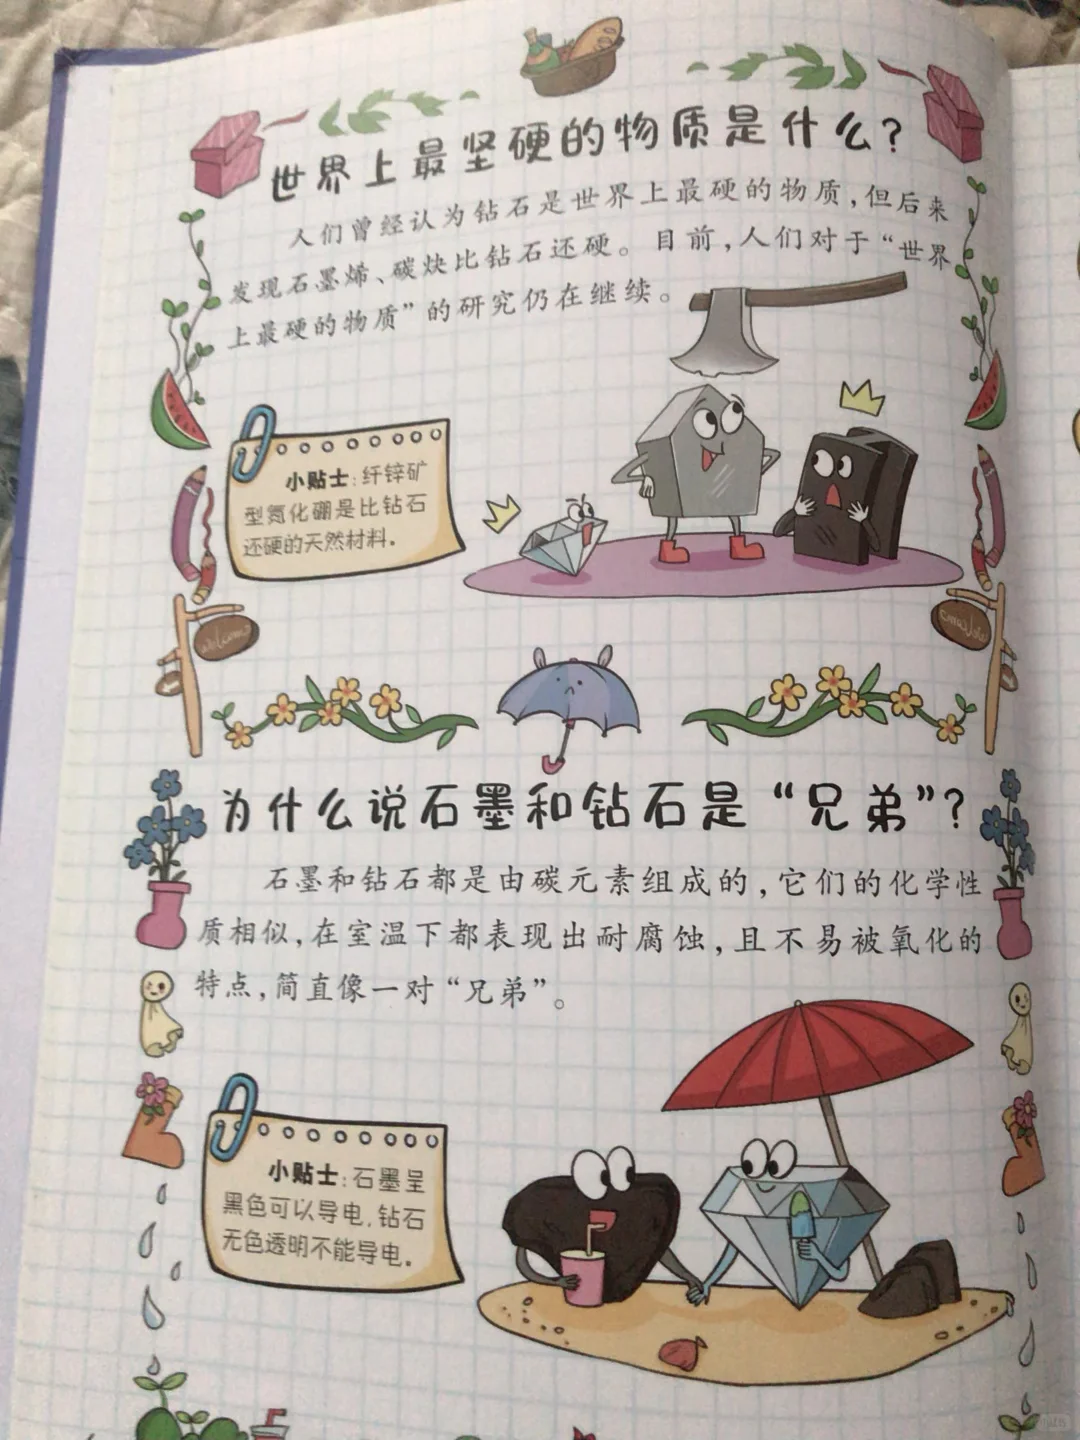 世界上最坚硬的物质是什么?
人们曾经认为钻石是世界上最硬的物质,但后来
发现石墨烯、碳炔比钻石还硬。目前,人们对于“世界
上最硬的物质”的研究仍在继续。
小贴士:纤锌矿
型氮化硼是比钻石
还硬的天然材料。
welcome
为什么说石墨和钻石是“兄弟”?
石墨和钻石都是由碳元素组成的,它们的化学性
质相似,在室温下都表现出耐腐蚀,且不易被氧化的
特点,简直像一对“兄弟”。
小贴士:石墨呈
黑色可以导电,钻石
无色透明不能导电。